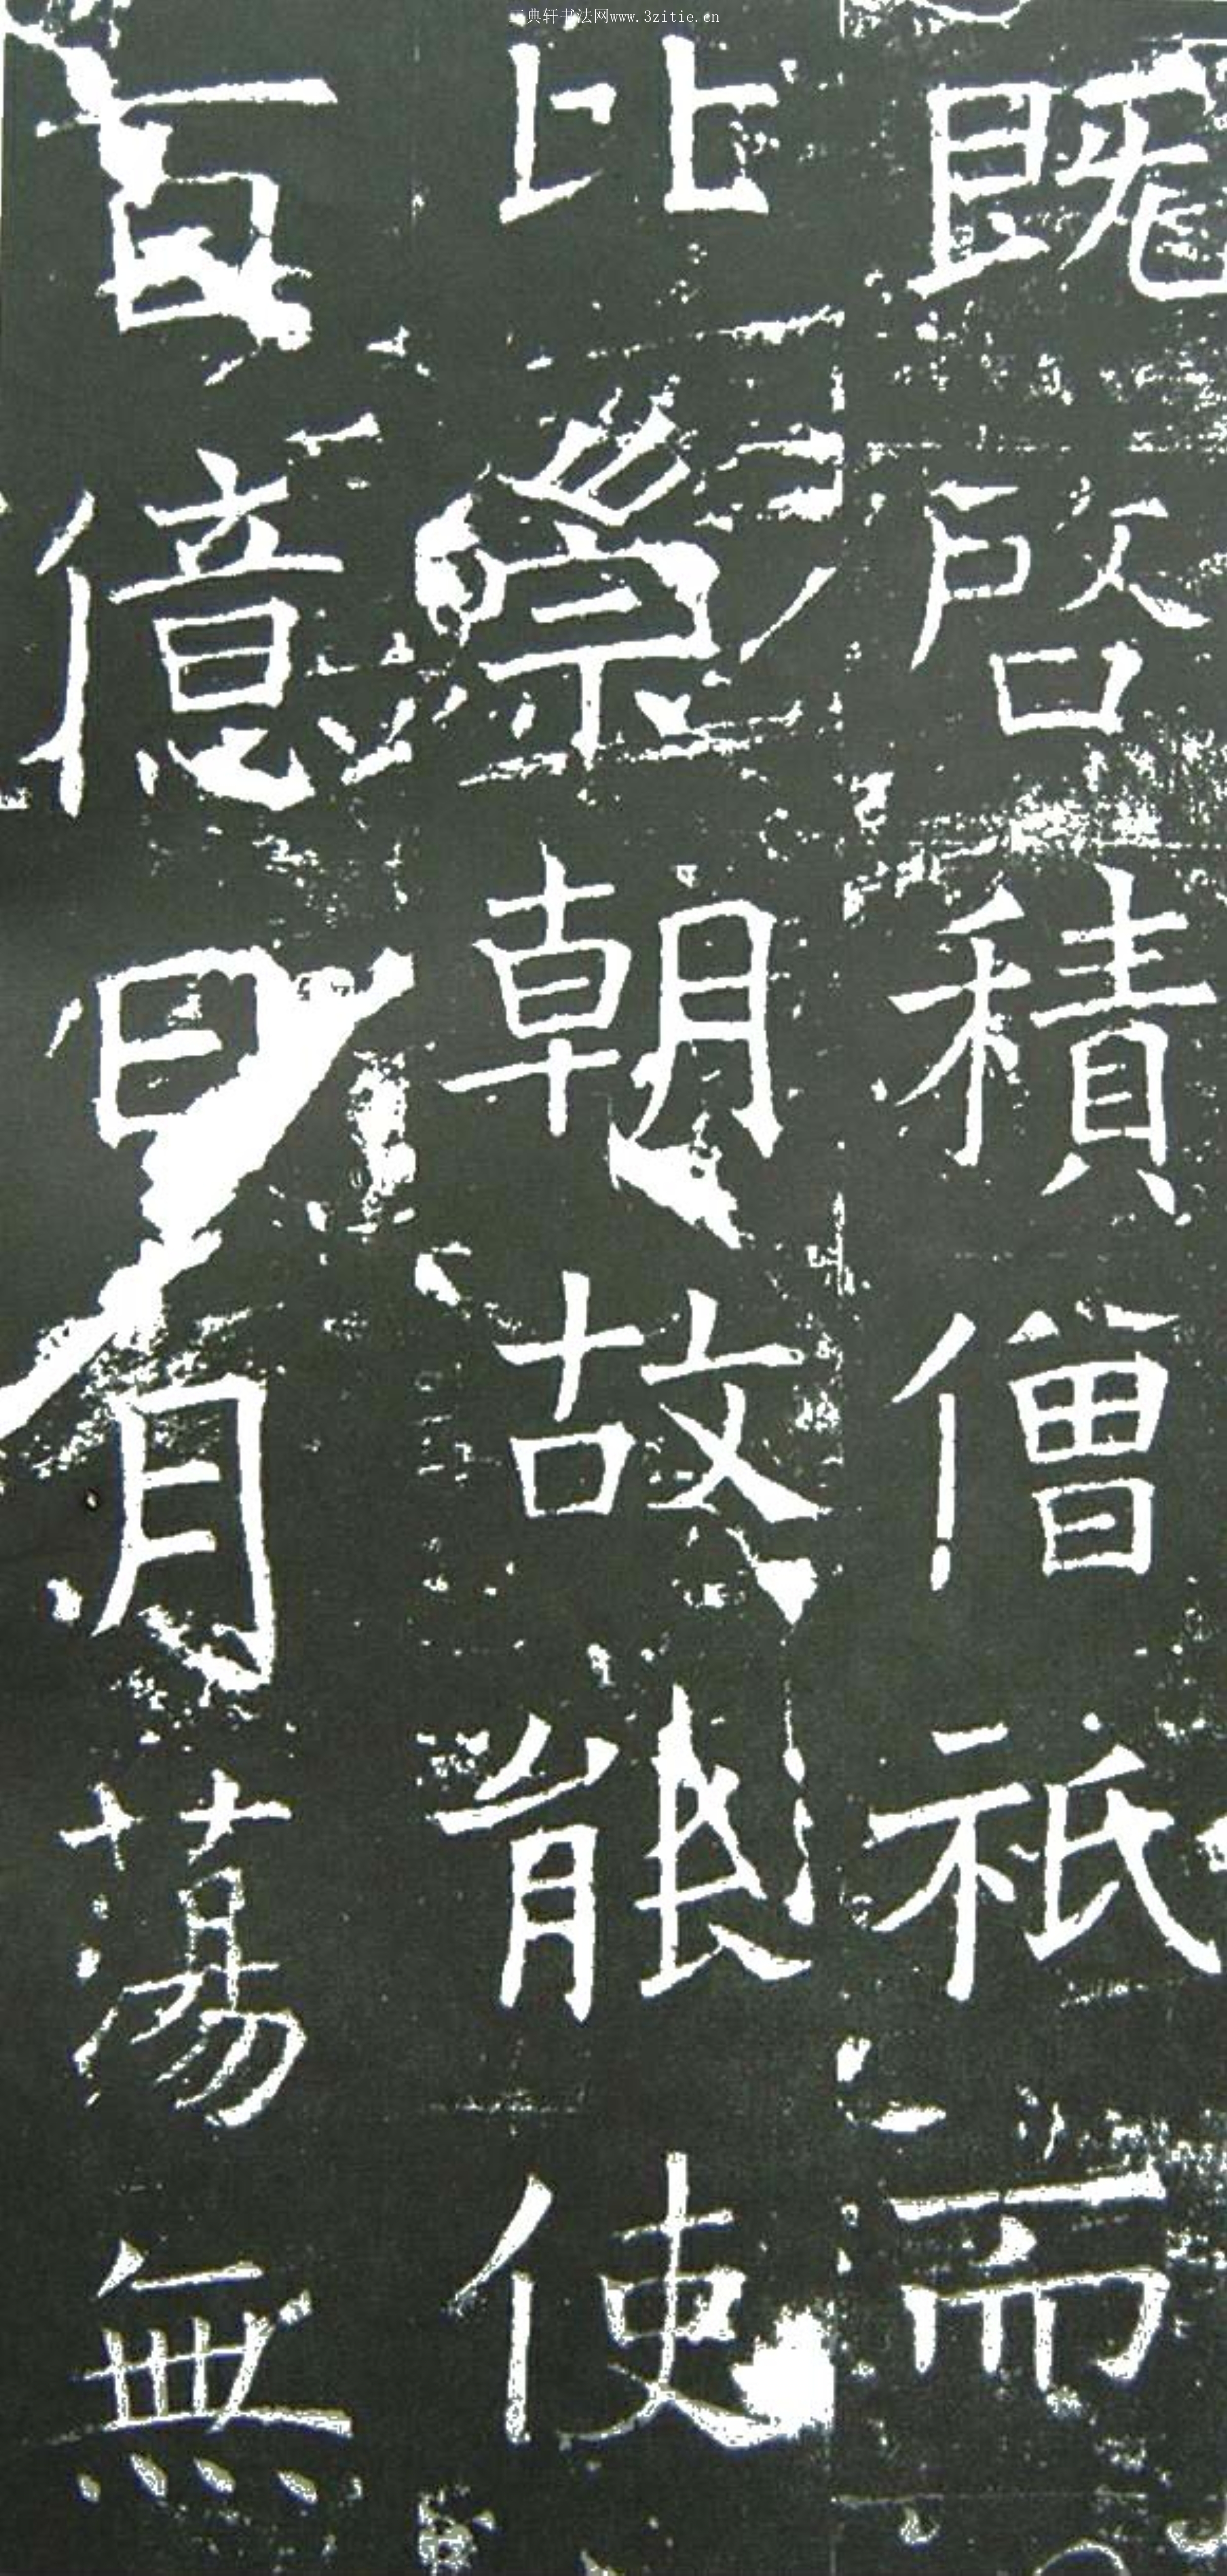 典轩书法网www.3zitie.cn
既啓積僧祇而
比崇朝故能使
百億日月蕩無